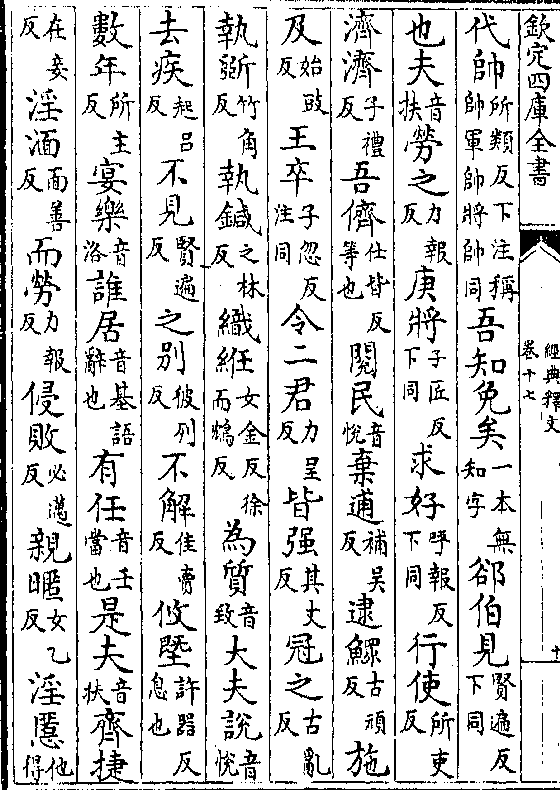 欽定四庫全書
經典釋文
卷十七
代帥所類反下注稱帥軍帥將帥同吾知免矣一本無知字郤伯見賢遍反下同
也夫音扶勞之力報反庚將子匠反下同求好呼報反下同行使所吏反
濟濟子禮反吾儕仕皆反等也閱民音悅棄逋補吳反逮鰥古頑反施
及始豉反王卒子忽反注同令二君力呈反皆强其丈反冠之古亂反
執斲竹角反執鍼之林反織紝女金反徐而鴆反為質音致大夫說音悅
去疾起呂反不見賢遍反之別彼列反不解佳賣反攸塈許器反息也
數年所主反宴樂音洛誰居音基語辭也有任音壬當也是夫音扶齊捷
在妾反淫湎面善反而勞力報反侵敗必邁反親暱女乙反淫慝他得